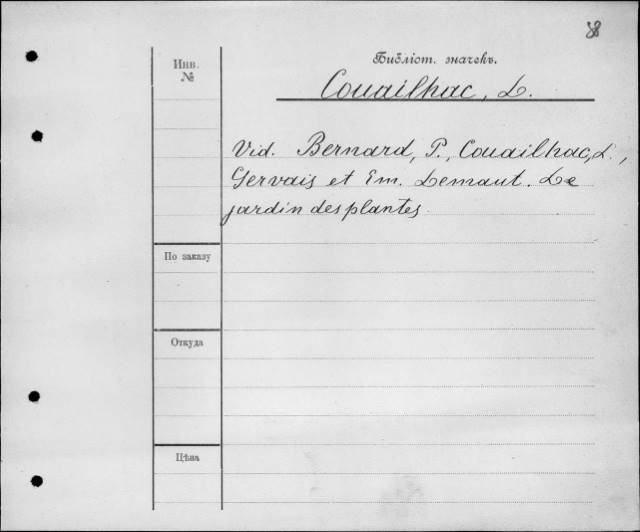 Инв.
№
Библіот. значекъ.
Couailhac, L.
Vid. Bernard, P., Couailhac, L.,
Gervais et Em. Lemaut. Le
jardin des plantes.
По заказу
Откуда
Цѣна